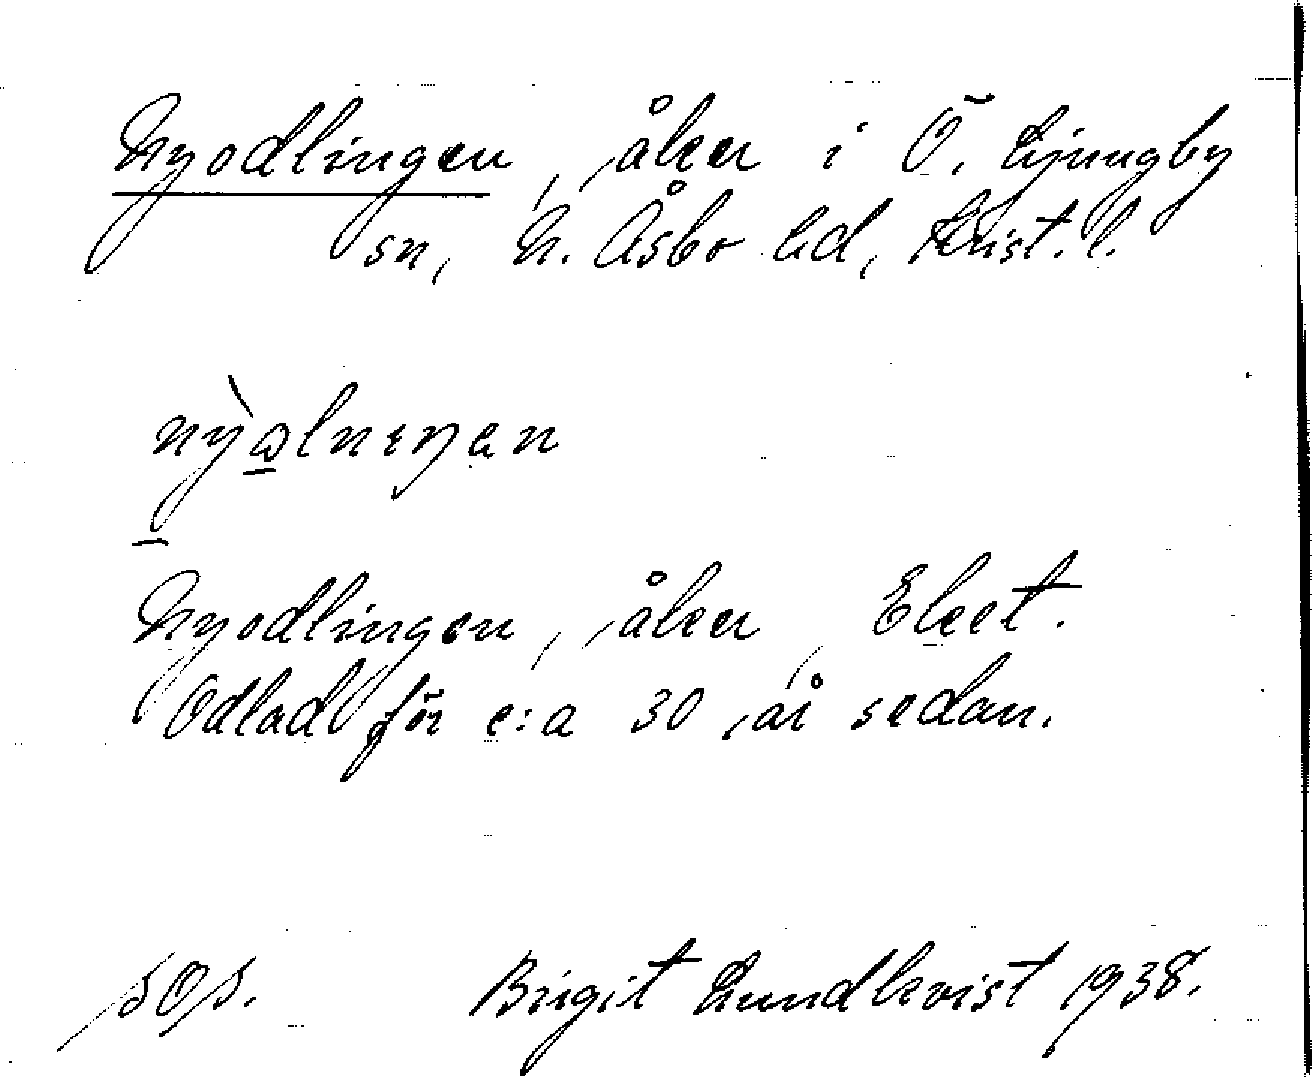 Nyodlingen, åker i Ö. Ljungby
sn, N. Åsbo hd, Krist. l.
Nyodlingen, åker, Elest.
Odlad för c:a 30 år sedan.
Birgit Lundkvist 1938.